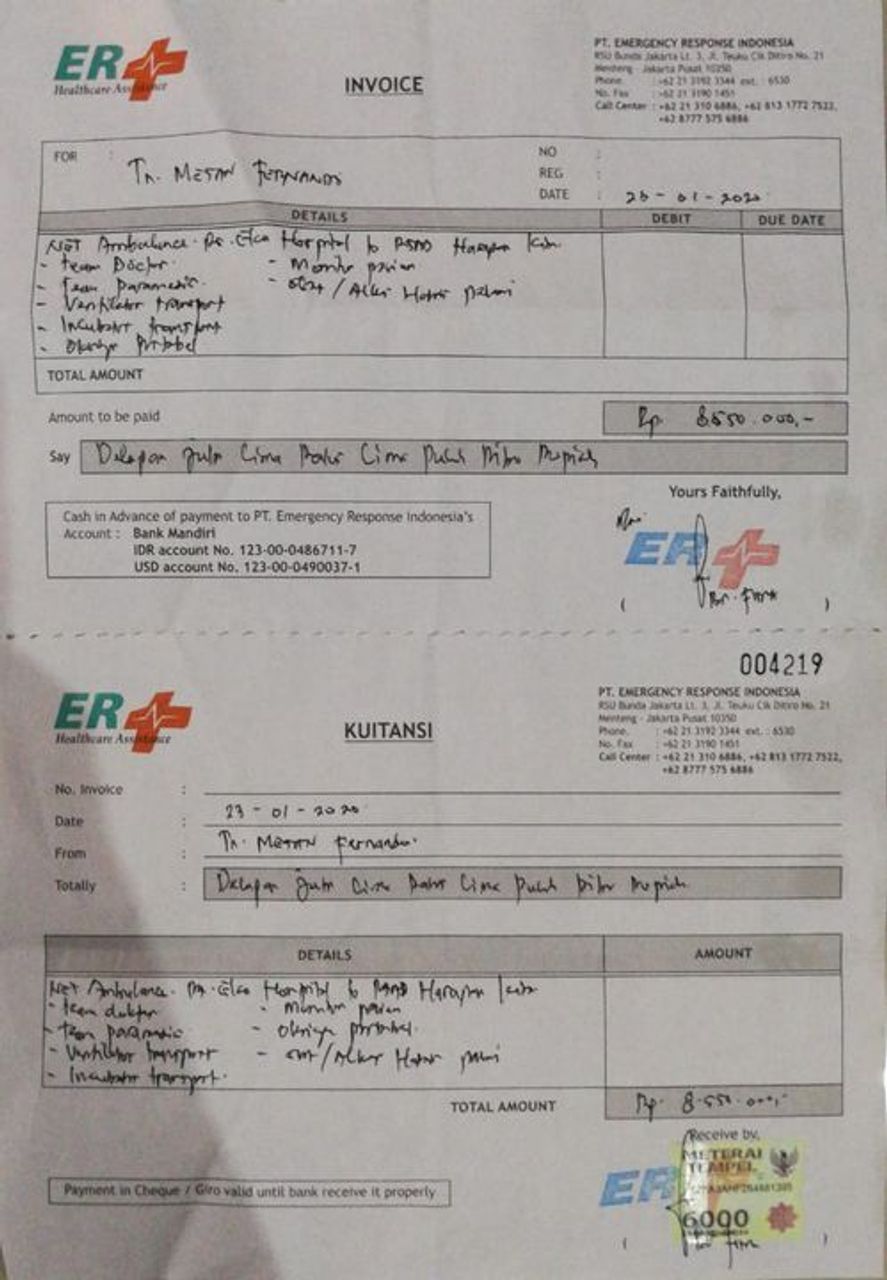 ER
Healthcare Assistance
INVOICE
PT. EMERGENCY RESPONSE INDONESIA
RSU Bunda Jakarta Lt. 3, Jl. Teuku Cik Ditiro No. 21
Menteng - Jakarta Pusat 10350
Phone. : +62 21 3192 3344 ext. : 6530
No. Fax : +62 21 3190 1451
Call Center : +62 21 310 6886, +62 813 1772 7522,
+62 8777 575 6886
FOR : Tn. METAN FERNANDO
NO :
REG :
DATE : 23-01-2020
DETAILS DEBIT DUE DATE
NET Ambulance. Hospital to Harapan
- Team Doctor. - Monitor
- Team paramedic. - /Alkes
- Ventilator transport
- Incubator transport
-
TOTAL AMOUNT
Amount to be paid Rp. 8.550.000,-
Say Delapan Juta Lima Ratus Lima Puluh Ribu Rupiah
Yours Faithfully,
Cash in Advance of payment to PT. Emergency Response Indonesia's
Account : Bank Mandiri
IDR account No. 123-00-0486711-7
USD account No. 123-00-0490037-1
ER
( )
004219
ER
Healthcare Assistance
KUITANSI
PT. EMERGENCY RESPONSE INDONESIA
RSU Bunda Jakarta Lt. 3, Jl. Teuku Cik Ditiro No. 21
Menteng - Jakarta Pusat 10350
Phone. : +62 21 3192 3344 ext. : 6530
No. Fax : +62 21 3190 1451
Call Center : +62 21 310 6886, +62 813 1772 7522,
+62 8777 575 6886
No. Invoice :
Date : 23-01-2020
From : Tn. METAN Fernando.
Totally : Delapan Juta Lima Ratus Lima Puluh Ribu Rupiah
DETAILS AMOUNT
NET Ambulance. Hospital to Harapan
- Team dokter - Monitor
- Team paramedic -
- Ventilator transport - /Alkes
- Incubator transport.
TOTAL AMOUNT Rp. 8.550.000,-
Receive by,
METERAI
TEMPEL
6000
ER
Payment in Cheque / Giro valid until bank receive it properly
( )